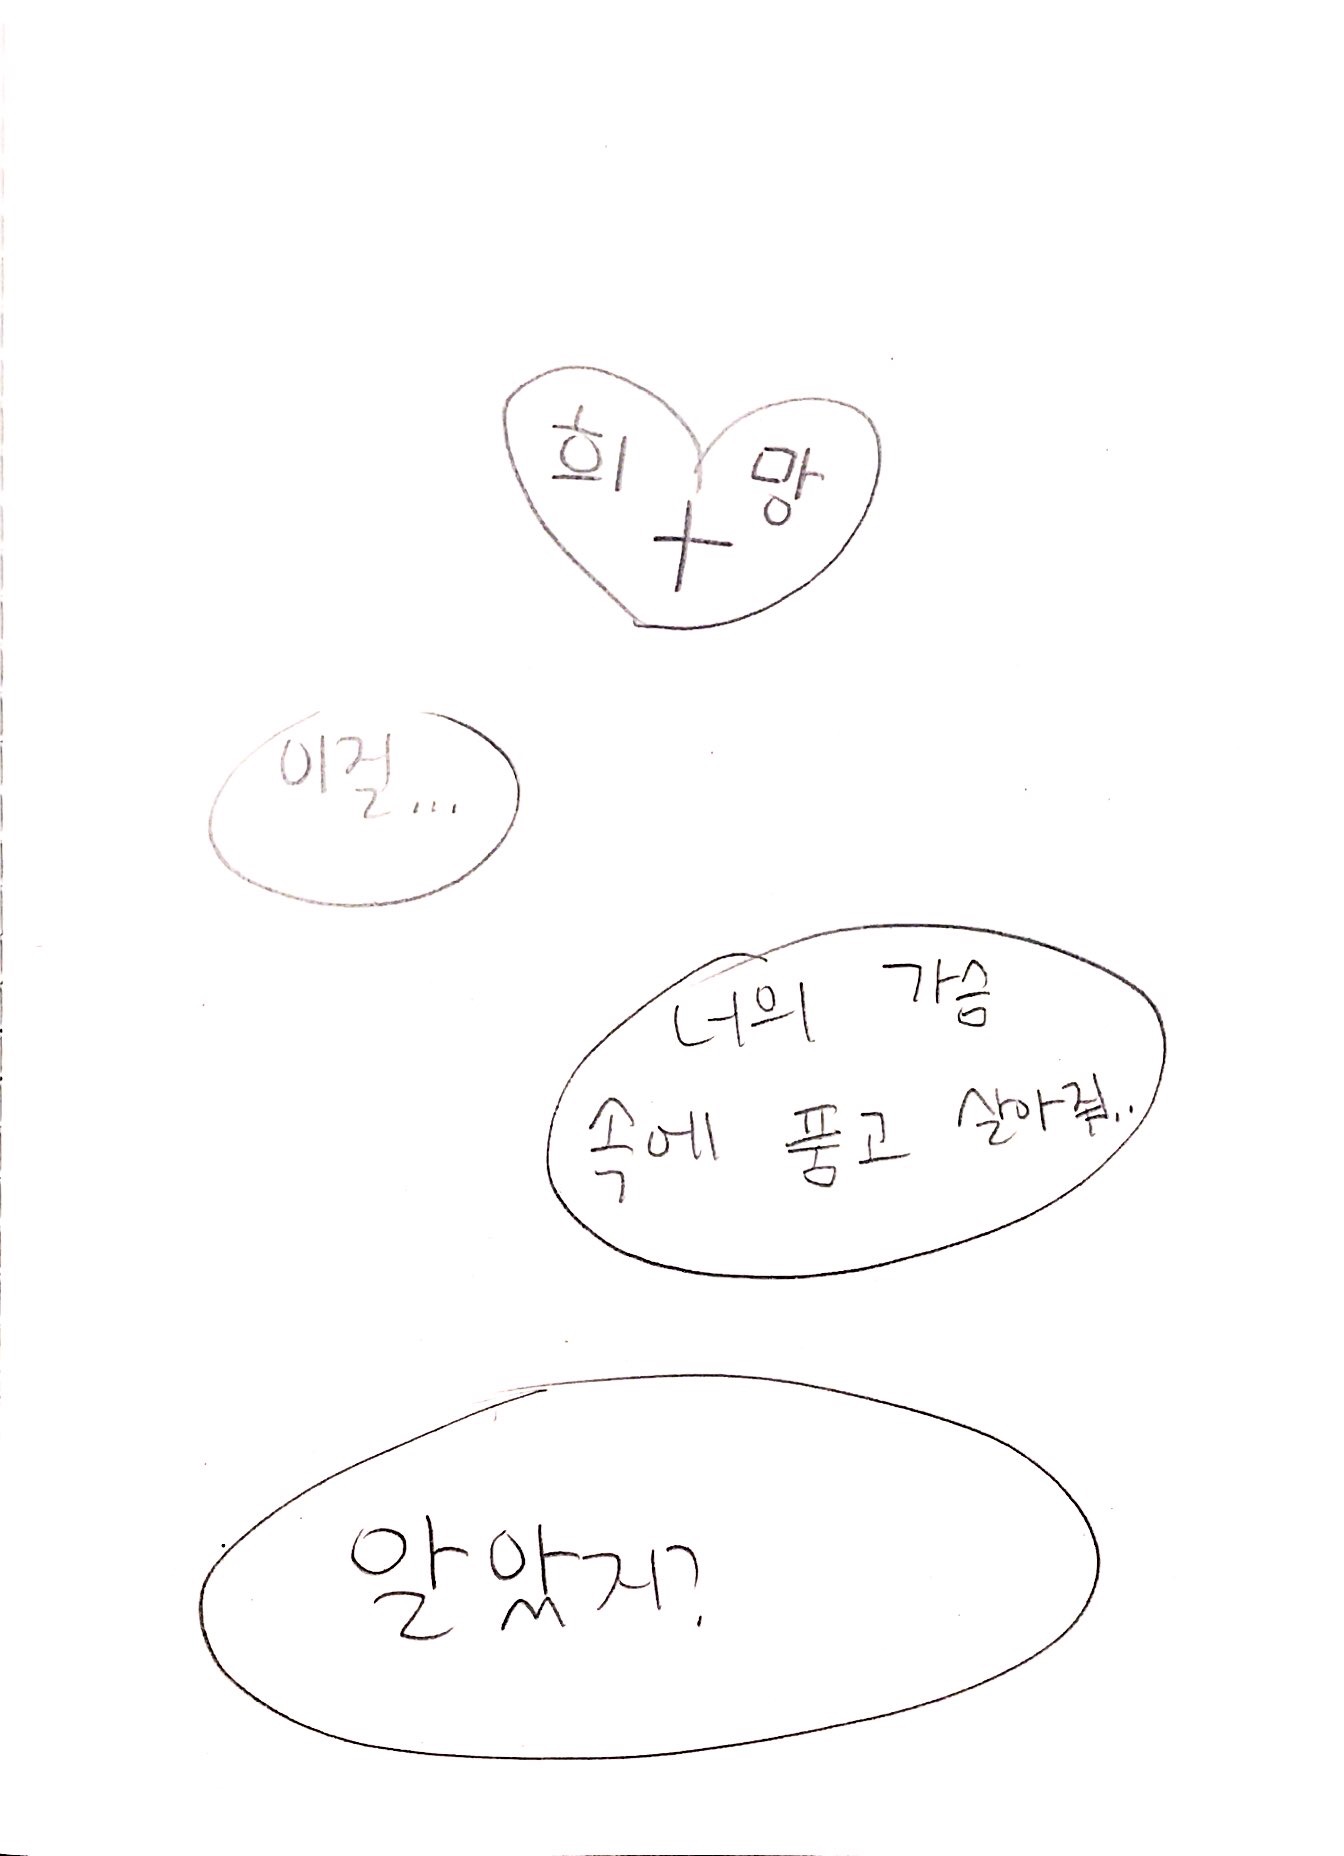 희 망
+
이걸...
너의 가슴
속에 품고 살아줘..
알았지?